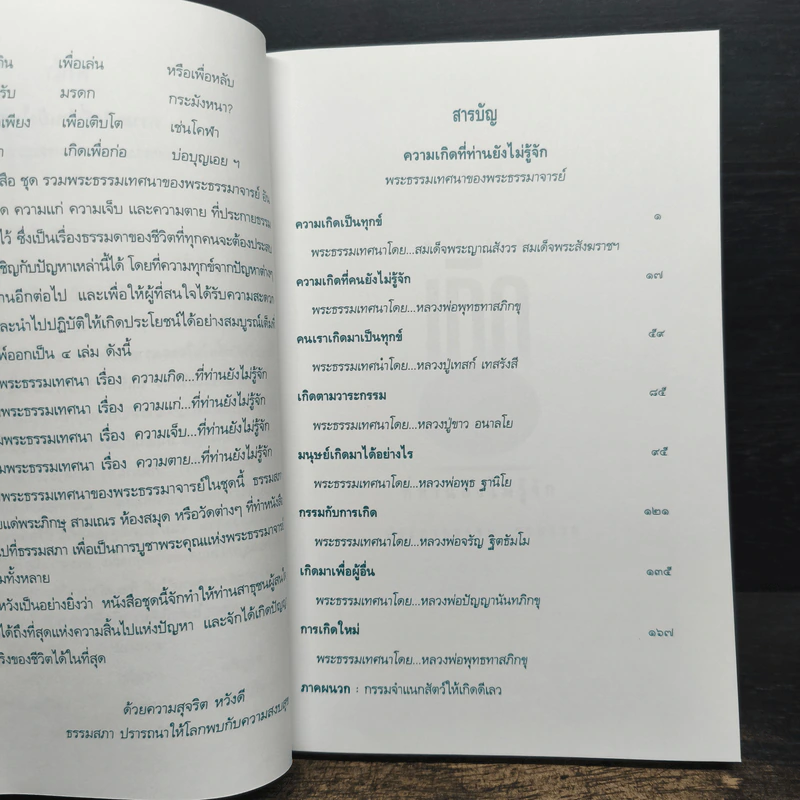 เพื่อเล่น หรือเพื่อหลับ
รับ มรดก กระมังหนา?
เพียง เพื่อเติบโต เช่นโคฬา
เกิดเพื่อก่อ บ่อบุญเอย ฯ
ชุด รวมพระธรรมเทศนาของพระธรรมาจารย์
ความแก่ ความเจ็บ และความตาย ที่ประกายธรรม
ไว้ ซึ่งเป็นเรื่องธรรมดาของชีวิตที่ทุกคนจะต้องประสบ
เชิญกับปัญหาเหล่านี้ได้ โดยที่ความทุกข์จากปัญหาต่างๆ
านอีกต่อไป และเพื่อให้ผู้ที่สนใจได้รับความสะดวก
และนำไปปฏิบัติให้เกิดประโยชน์ได้อย่างสมบูรณ์เต็มที่
พ์ออกเป็น ๔ เล่ม ดังนี้
พระธรรมเทศนา เรื่อง ความเกิด...ที่ท่านยังไม่รู้จัก
พระธรรมเทศนา เรื่อง ความแก่...ที่ท่านยังไม่รู้จัก
มพระธรรมเทศนา เรื่อง ความเจ็บ...ที่ท่านยังไม่รู้จัก
มพระธรรมเทศนา เรื่อง ความตาย...ที่ท่านยังไม่รู้จัก
พระธรรมเทศนาของพระธรรมาจารย์ในชุดนี้ ธรรมสภา
แด่พระภิกษุ สามเณร ห้องสมุด หรือวัดต่างๆ ที่ทำหนังสือ
ไปที่ธรรมสภา เพื่อเป็นการบูชาพระคุณแห่งพระธรรมาจารย์
มทั้งหลาย
หวังเป็นอย่างยิ่งว่า หนังสือชุดนี้จักทำให้ท่านสาธุชนผู้สนใจ
ได้ถึงที่สุดแห่งความสิ้นไปแห่งปัญหา และจักได้เกิดปัญญา
ริงของชีวิตได้ในที่สุด
ด้วยความสุจริต หวังดี
ธรรมสภา ปรารถนาให้โลกพบกับความสงบสุข
สารบัญ
ความเกิดที่ท่านยังไม่รู้จัก
พระธรรมเทศนาของพระธรรมาจารย์
ความเกิดเป็นทุกข์ ๑
พระธรรมเทศนาโดย...สมเด็จพระญาณสังวร สมเด็จพระสังฆราชฯ
ความเกิดที่คนยังไม่รู้จัก ๑๗
พระธรรมเทศนาโดย...หลวงพ่อพุทธทาสภิกขุ
คนเราเกิดมาเป็นทุกข์ ๕๙
พระธรรมเทศนำโดย...หลวงปู่เทสก์ เทสรังสี
เกิดตามวาระกรรม ๘๕
พระธรรมเทศนาโดย...หลวงปู่ขาว อนาลโย
มนุษย์เกิดมาได้อย่างไร ๙๕
พระธรรมเทศนาโดย...หลวงพ่อพุธ ฐานิโย
กรรมกับการเกิด ๑๒๑
พระธรรมเทศนาโดย...หลวงพ่อจรัญ ฐิตธัมโม
เกิดมาเพื่อผู้อื่น ๑๓๕
พระธรรมเทศนาโดย...หลวงพ่อปัญญานันทภิกขุ
การเกิดใหม่ ๑๖๗
พระธรรมเทศนาโดย...หลวงพ่อพุทธทาสภิกขุ
ภาคผนวก : กรรมจำแนกสัตว์ให้เกิดดีเลว